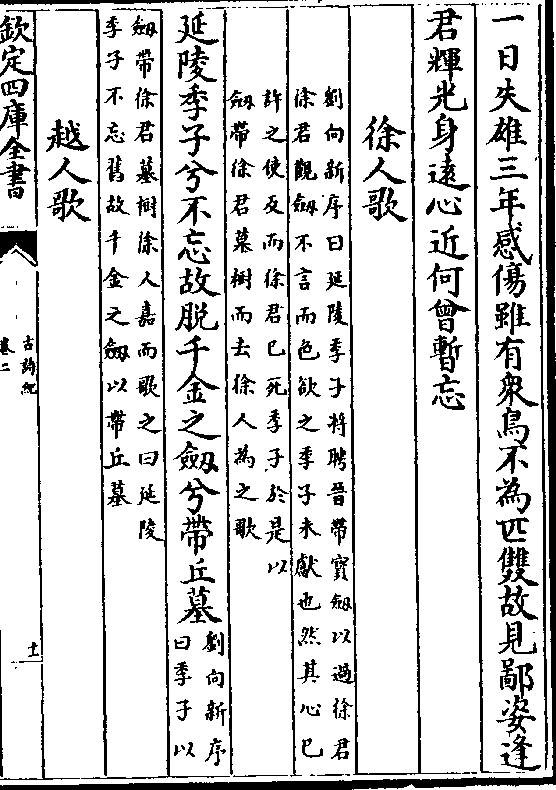 一日失雄三年感傷雖有衆鳥不為匹雙故見鄙姿逢
君輝光身遠心近何曾暫忘
徐人歌
劉向新序曰延陵季子將聘晉帶寶劔以過徐君
徐君觀劔不言而色欲之季子未獻也然其心已
許之使反而徐君已死季子於是以
劔帶徐君墓樹而去徐人為之歌
延陵季子兮不忘故脱千金之劔兮帶丘墓
劉向新序
曰季子以
劔帶徐君墓樹徐人嘉而歌之曰延陵
季子不忘舊故千金之劔以帶丘墓
越人歌
欽定四庫全書
古詩紀
卷二
十一